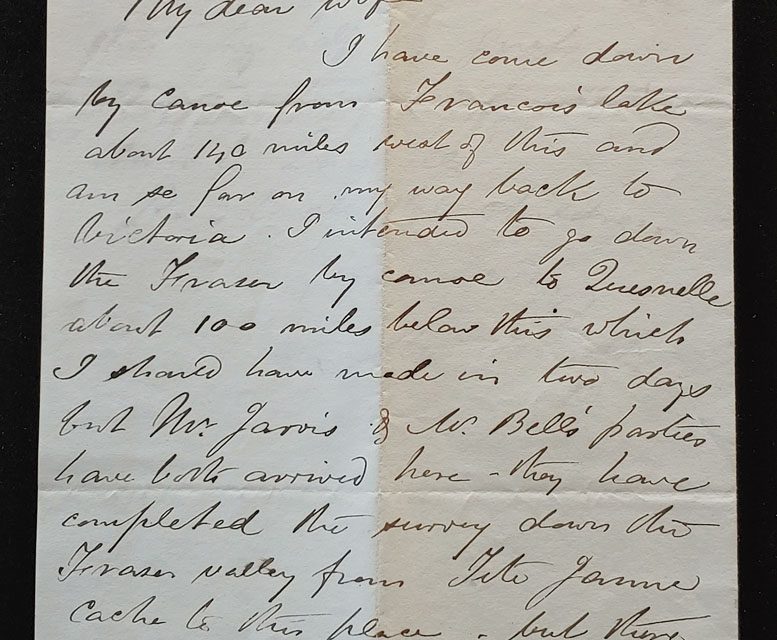 My dear wife
I have come down
by canoe from Francois lake
about 140 miles west of this and
am so far on my way back to
Victoria. I intended to go down
the Fraser by canoe to Quesnelle
about 100 miles below this which
I should have made in two days
but Mr. Jarvis & Mr. Bell's parties
have both arrived here - they have
completed the survey down the
Fraser valley from Tete Jaune
Cache to this place - but they